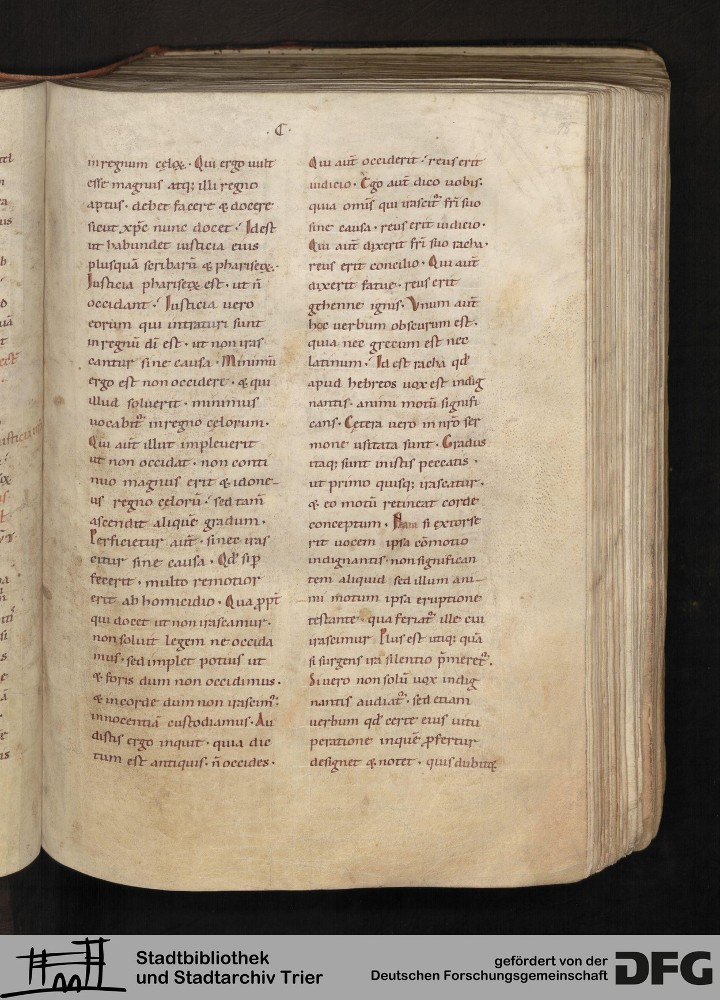 · C ·
in regnum celoꝝ. Qui ergo uult
esse magnus atq; illi regno
aptus · debet facere & docere
sicut xp̄c nunc docet. Idest
ut habundet iusticia eius
plusquā scribarū & phariseoꝝ.
Iusticia phariseoꝝ est · ut n̄
occidant. Iusticia uero
eorum qui intraturi sunt
in regnū dī est · ut non iras
cantur sine causa. Minimū
ergo est non occidere · & qui
illud soluerit · minimus
uocabit᷑ in regno celorum ·
Qui aut̄ illut impleuerit
ut non occidat · non conti
nuo magnus erit & idone-
us regno celorū. sed tam̄
ascendit aliquē gradum ·
Perficietur aut̄ · si nec iras
citur sine causa · Qd̄ si ꝑ
fecerit · multo remotior
erit ab homicidio · Qua ꝓpt̄
qui docet ut non irascamur ·
non soluit legem ne occida
mus · sed implet potius ut
& foris dum non occidimus ·
& in corde dum non irascim᷑
innocentiā custodiamus · Au
distis ergo inquit · quia dic
tum est antiquis · n̄ occides ·
Qui aut̄ occiderit · reus erit
iudicio · Ego aut̄ dico uobis ·
quia omīs qui irascit᷑ fr̄i suo
sine causa · reus erit iudicio ·
Qui aut̄ dixerit fr̄i suo racha ·
reus erit concilio · Qui aut̄
dixerit fatue · reus erit
gehenne ignis · Vnum aut̄
hoc uerbum obscurum est ·
quia nec grecum est nec
latinum. Id est racha qd̄
apud hebreos uox est indig
nantis · animi motū signifi
cans · Cetera uero in nr̄o ser
mone usitata sunt · Gradus
itaq; sunt in istis peccatis ·
ut primo quisq; irascatur ·
& eo motū retineat corde
conceptum · Nam si extorse
rit uocem ipsa cōmotio
indignantis · non significan
tem aliquid sed illum ani-
mi motum ipsa eruptione
testante · qua feriat᷑ ille cui
irascimur Plus est utiq; quā
si surgens ira silentio p̄meret᷑.
Si uero non solū uox indig
nantis audiat᷑ · sed etiam
uerbum qd̄ certe eius uitu
peratione in quē ꝓfertur
designet & notet · quis dubitet
Stadtbibliothek
und Stadtarchiv Trier
gefördert von der
Deutschen Forschungsgemeinschaft
DFG